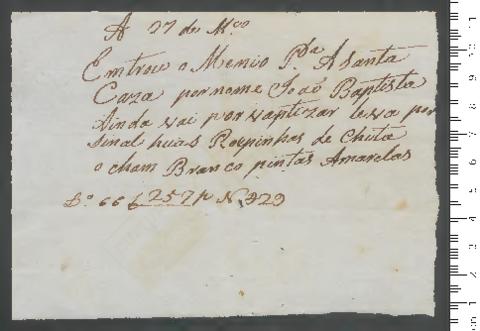 A 27 de Mço
Emtrou o Menino Pª A Santa
Caza por nome João Baptista
Ainda vai por vaptizar leva por
sinal huas Roupinhas de Chita
o cham Branco pintas Amarelas
Lº 66 f 257 N 429